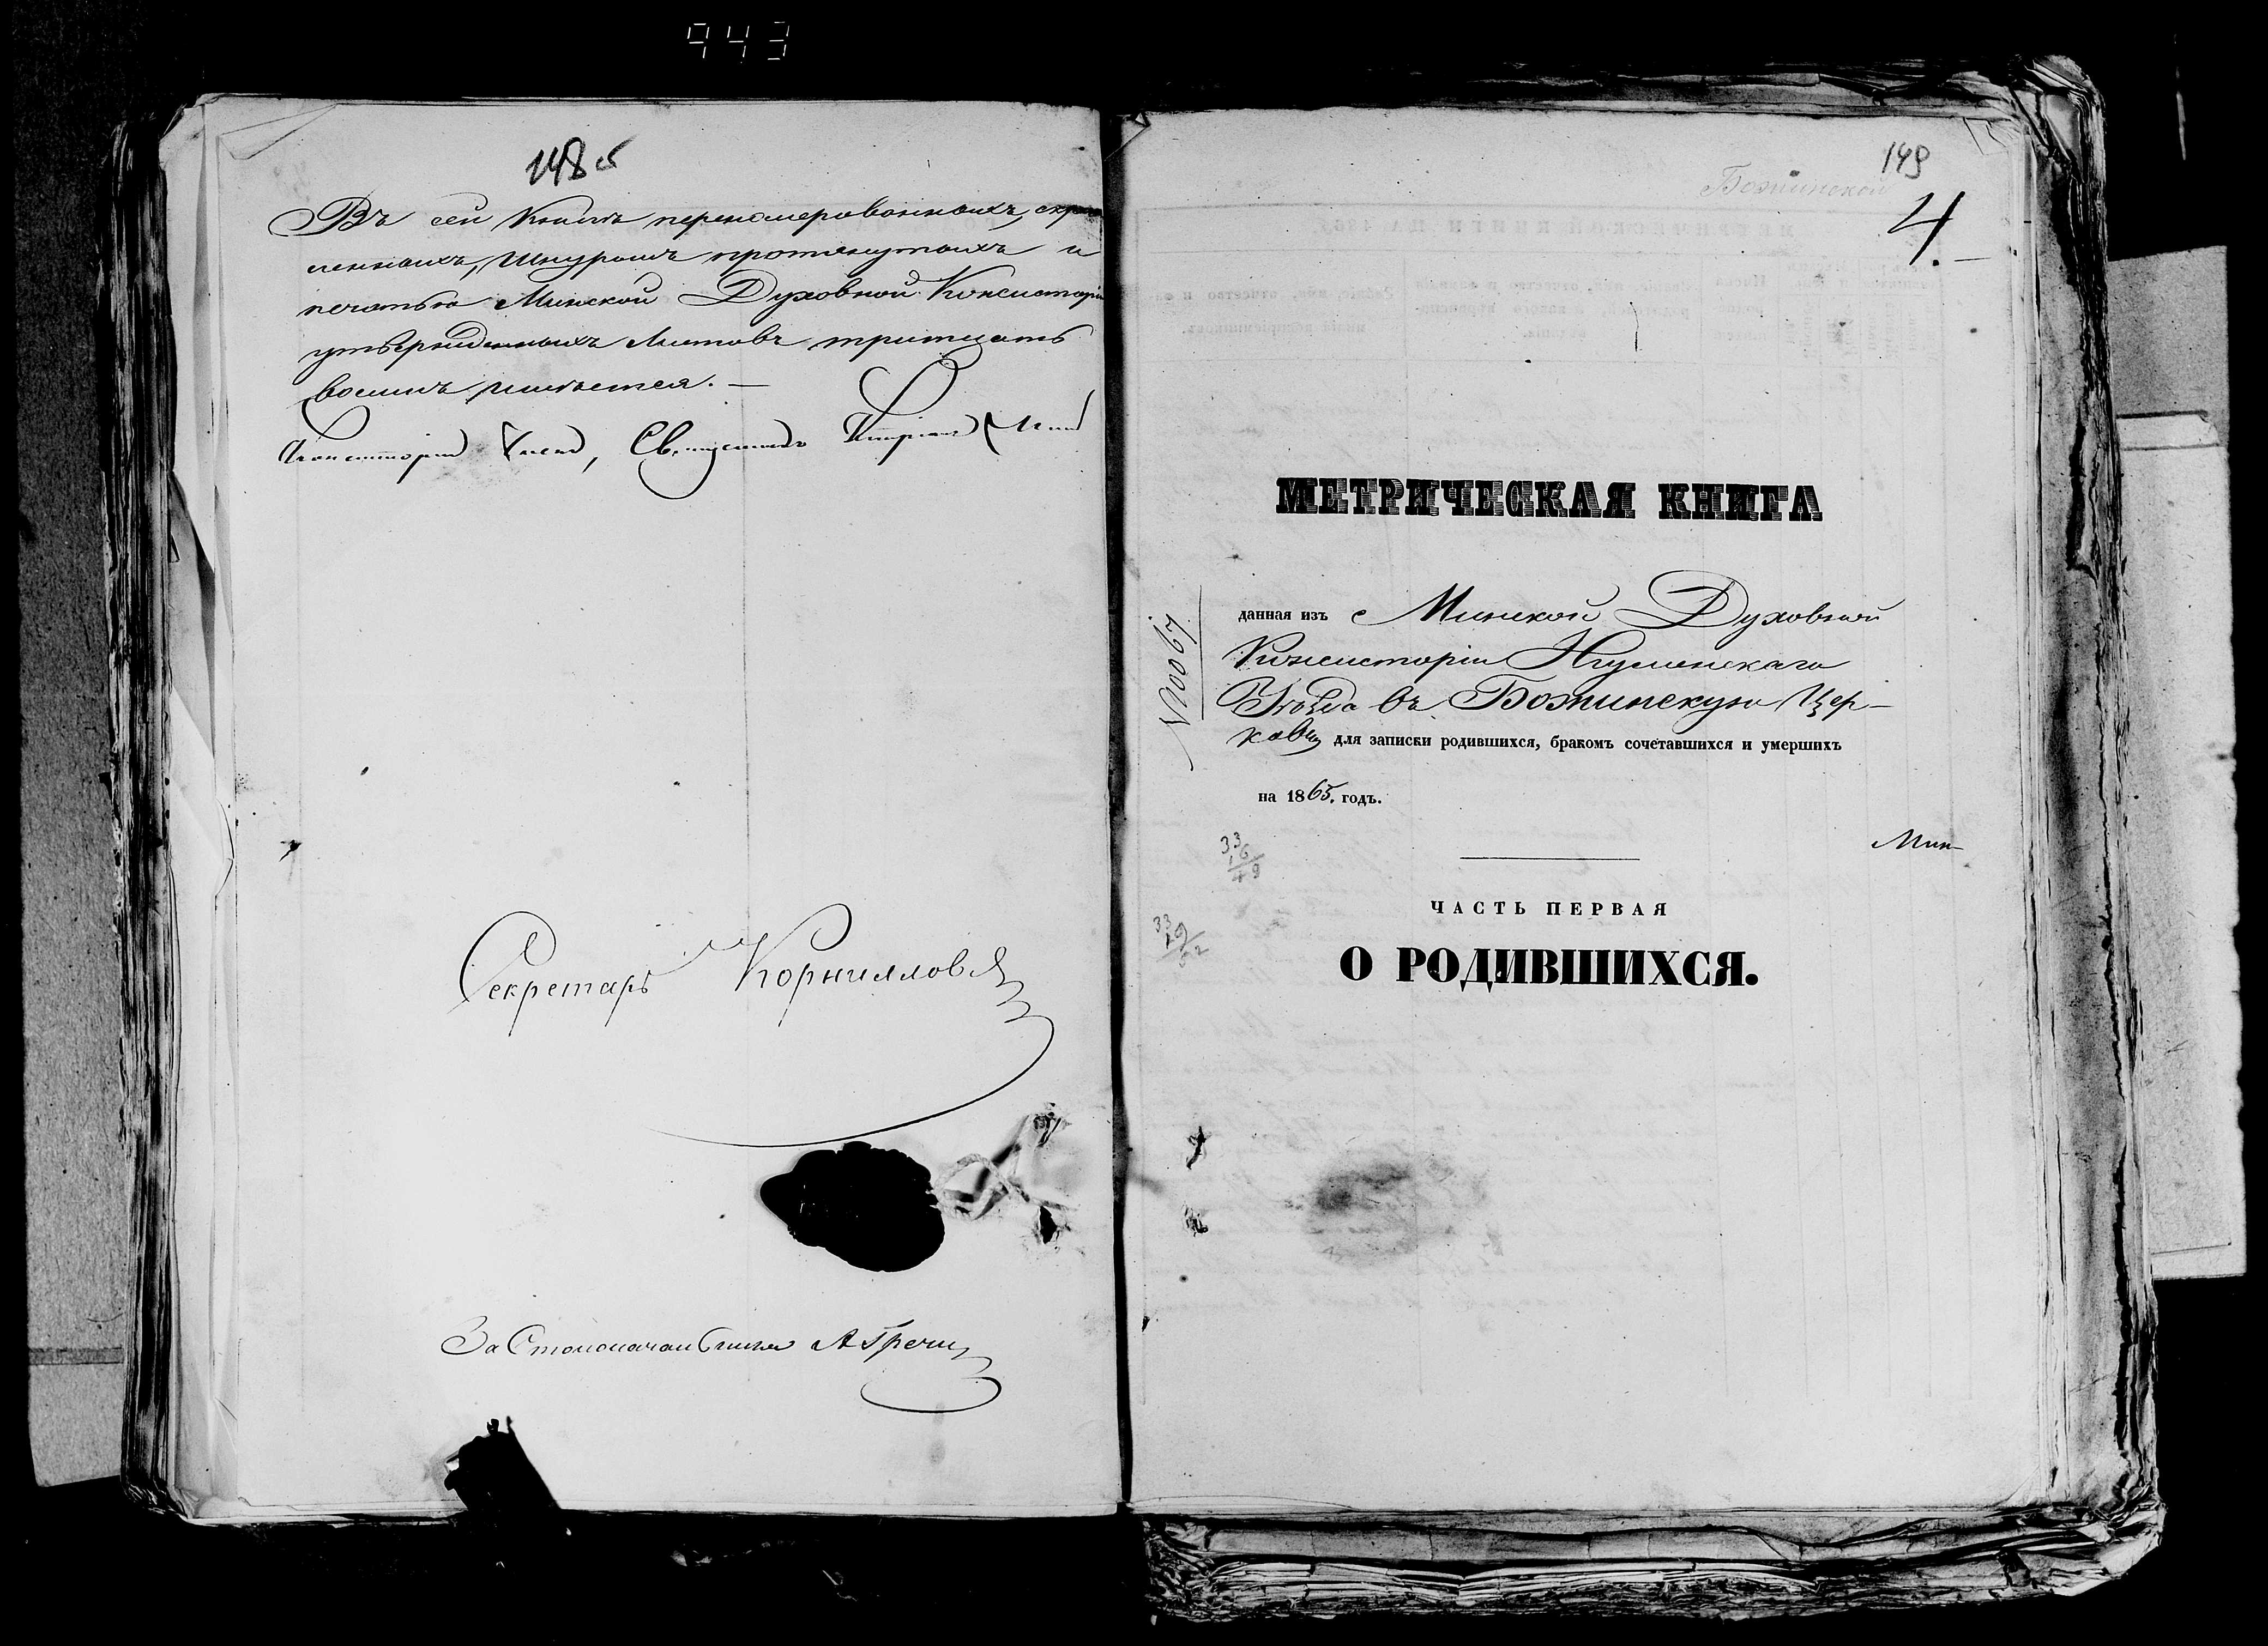 943
148 об
Въ сей Книгѣ перенумерованныхъ, скрѣп
ленныхъ, шнуромъ протянутыхъ и
печатью Минской Духовной Консисторіи
утвержденныхъ Листовъ тритцать
восемь имѣется. —
Консисторіи Членъ, Священникъ
Секретарь Корниллов
За Столоначальника А Гречи
149
Божинской
4.
МЕТРИЧЕСКАЯ КНИГА
данная изъ Минской Духовной
Консисторіи Игуменскаго
Уѣзда въ Божинскую Цер-
ковь для записки родившихся, бракомъ сочетавшихся и умершихъ
на 1865. годъ.
33
16
49
Мин-
ЧАСТЬ ПЕРВАЯ
О РОДИВШИХСЯ.